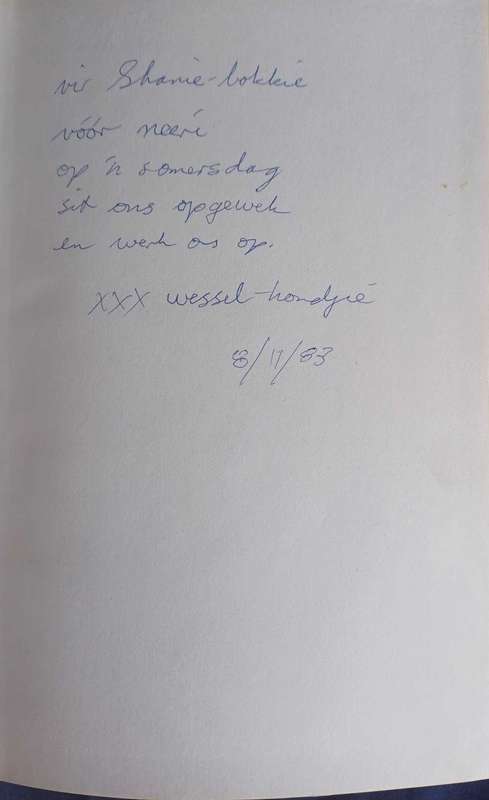 vir Shanie-bokkie
vóór neeri
op 'n somersdag
sit ons opgewek
en werk os op.
XXX wessel-hondjie
8/11/83